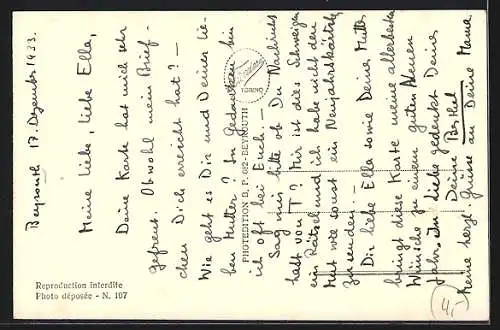 Beyrouth 17. Dezember 1933.
Meine liebe, liebe Ella,
Deine Karte hat mich sehr
gefreut. Obwohl mein Brief-
chen Dich erreicht hat? -
Wie geht es Dir und Deiner lie-
ben Mutter? In Gedanken bin
ich oft bei Euch. -
Sag mir bitte ob Du Nachricht
hast von T? Mir ist dies Schweigen
ein Rätsel und ich habe nicht den
Mut wie sonst ein Neujahrskärtchen
zu senden. -
Dir liebe Ella sowie Deiner Mutter
bringt diese Karte meine allerbesten
Wünsche zu einem guten Neuen
Jahr. In Liebe gedenkt Deiner
Deine
Meine herzl. Grüsse an Deine Mama
PHOTEDITION D, P. 622-BEYROUTH
TORINO
Reproduction interdite
Photo déposée - N. 107
4,-